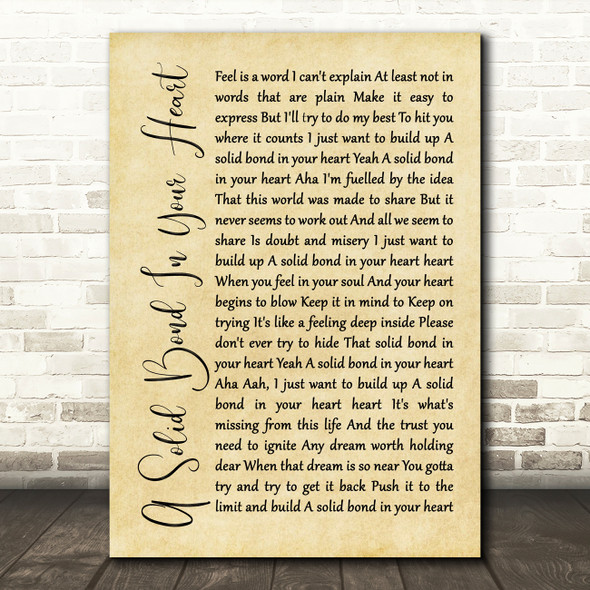 A Solid Bond In Your Heart
Feel is a word I can't explain At least not in
words that are plain Make it easy to
express But I'll try to do my best To hit you
where it counts I just want to build up A
solid bond in your heart Yeah A solid bond
in your heart Aha I'm fuelled by the idea
That this world was made to share But it
never seems to work out And all we seem to
share Is doubt and misery I just want to
build up A solid bond in your heart heart
When you feel in your soul And your heart
begins to blow Keep it in mind to Keep on
trying It's like a feeling deep inside Please
don't ever try to hide That solid bond in
your heart Yeah A solid bond in your heart
Aha Aah, I just want to build up A solid
bond in your heart heart It's what's
missing from this life And the trust you
need to ignite Any dream worth holding
dear When that dream is so near You gotta
try and try to get it back Push it to the
limit and build A solid bond in your heart